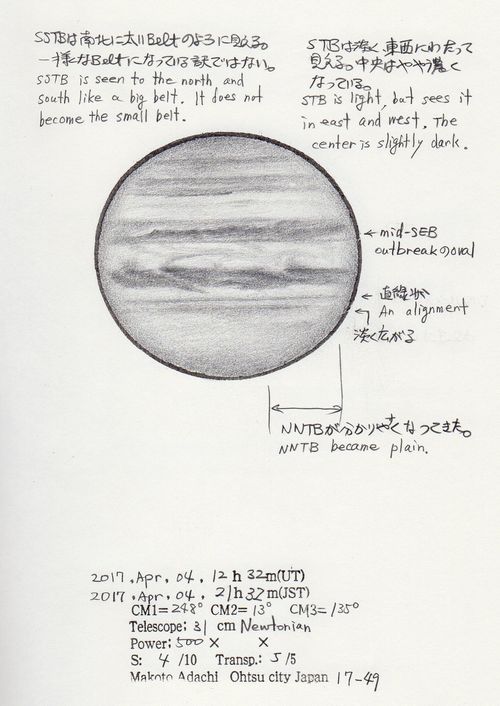 SSTBは南北に太いBeltのように見える。
一様なBeltになっている訳ではない。
SSTB is seen to the north and
south like a big belt. It does not
become the small belt.
STBは淡く東西にわたって
見える。中央はやや濃く
なっている。
STB is light, but sees it
in east and west. The
center is slightly dark.
←mid-SEB
outbreakのoval
←直線状
An alignment
淡く広がる
NNTBが分かりやすくなってきた。
NNTB became plain.
2017.Apr.04. 12h 32m(UT)
2017.Apr.04. 21h 32m(JST)
CM1=248° CM2=13° CM3=135°
Telescope: 31 cm Newtonian
Power: 500× ×
S: 4/10 Transp.: 5/5
Makoto Adachi Ohtsu city Japan 17-49